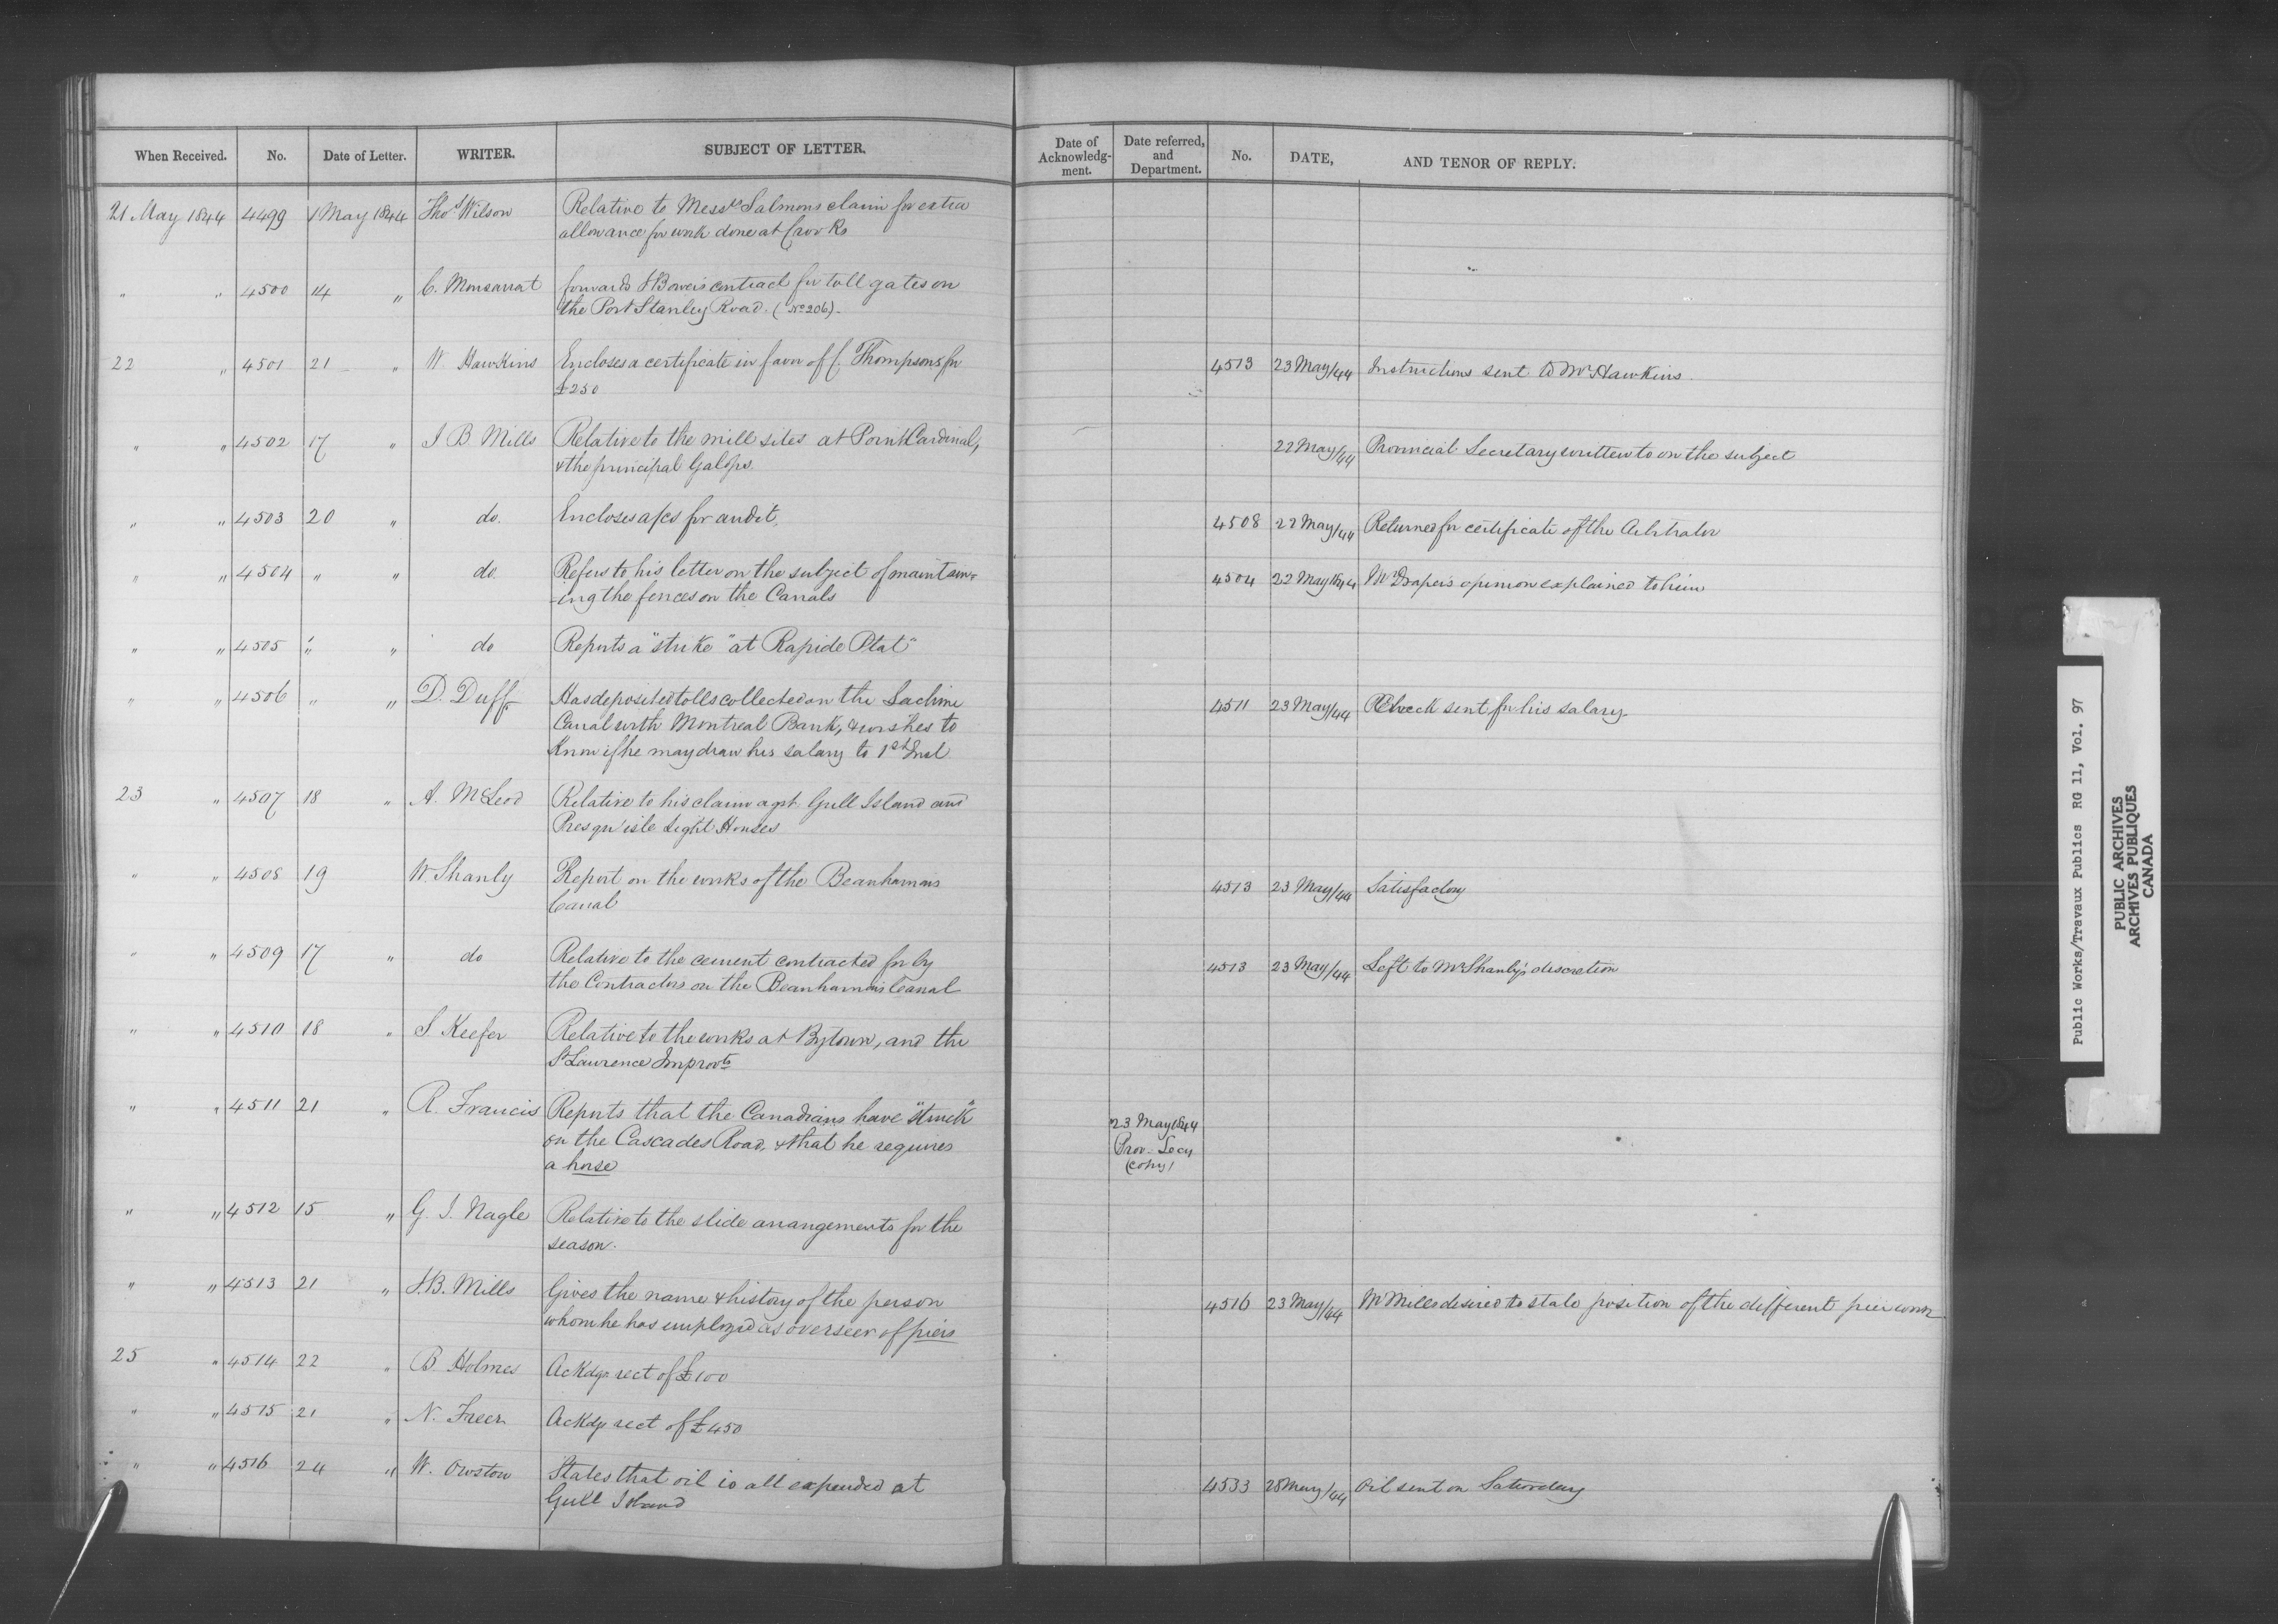 When Received. No. Date of Letter. WRITER. SUBJECT OF LETTER. Date of Acknowledg-ment. Date referred, and Department. No. DATE, AND TENOR OF REPLY.
21 May 1844 4499 May 1844 Thos Wilson Relative to Messrs Salmons claim for extra
allowance for work done at
" " 4500 14 " C. Monsarrat forwards contract for toll gates on
the Port Stanley Road. (No 206)
22 " 4501 21 " W. Hawkins Encloses a certificate in favor of C. Thompson, for 4513 23 May/44 Instructions sent to Mr Hawkins.
£250
" " 4502 17 " J B Mills Relative to the mill sites at Point Cardinal, 22 May/44 Provincial Secretary written to on the subject
& the principal Galops.
" " 4503 20 " do. Encloses a/cs for audit, 4508 22 May/44 Returned for certificate of the Arbitrator
" " 4504 " " do. Refers to his letter on the subject of maintain- 4504 22 May 1844 Mr Draper's opinion explained to him
-ing the fences on the Canals
" " 4505 " " do Reports a "strike" at Rapide Plat"
" " 4506 " " D. Duff Has deposited tolls collected on the Lachine 4511 23 May/44 Check sent for his salary.
Canal with Montreal Bank, & wishes to
know if he may draw his salary to 1st Inst.
23 " 4507 18 " A. McLeod Relative to his claim agst. Gull Island and
Presqu'isle Light Houses
" " 4508 19 W Shanly Report on the works of the Beauharnois 4513 23 May/44 Satisfactory
Canal
" " 4509 17 " do Relative to the cement contracted for by 4513 23 May/44 Left to Mr Shanly's discretion
the Contractors on the Beauharnois Canal
" " 4510 18 " S Keefer Relative to the works at Bytown, and the
St Lawrence Improvts
" " 4511 21 " R. Francis Reports that the Canadians have "struck" 23 May 1844
on the Cascades Road, & that he requires Prov. Secy
a horse (copy)
" " 4512 15 " G. J. Nagle Relative to the slide arrangements for the
season.
" " 4513 21 " J.B. Mills Gives the name & history of the person 4516 23 May/44 Mr Mills desired to state position of the different pier work
whom he has employed as overseer of piers
25 " 4514 22 " B. Holmes Ackdgs rect of £100
" " 4515 21 " N. Freer Ackdgs rect of £450
" " 4516 24 " W. Owston States that oil is all expended at 4533 28 May/44 Oil sent on Saturday
Gull Island
Public Works/Travaux Publics RG 11, Vol. 97
PUBLIC ARCHIVES
ARCHIVES PUBLIQUES
CANADA